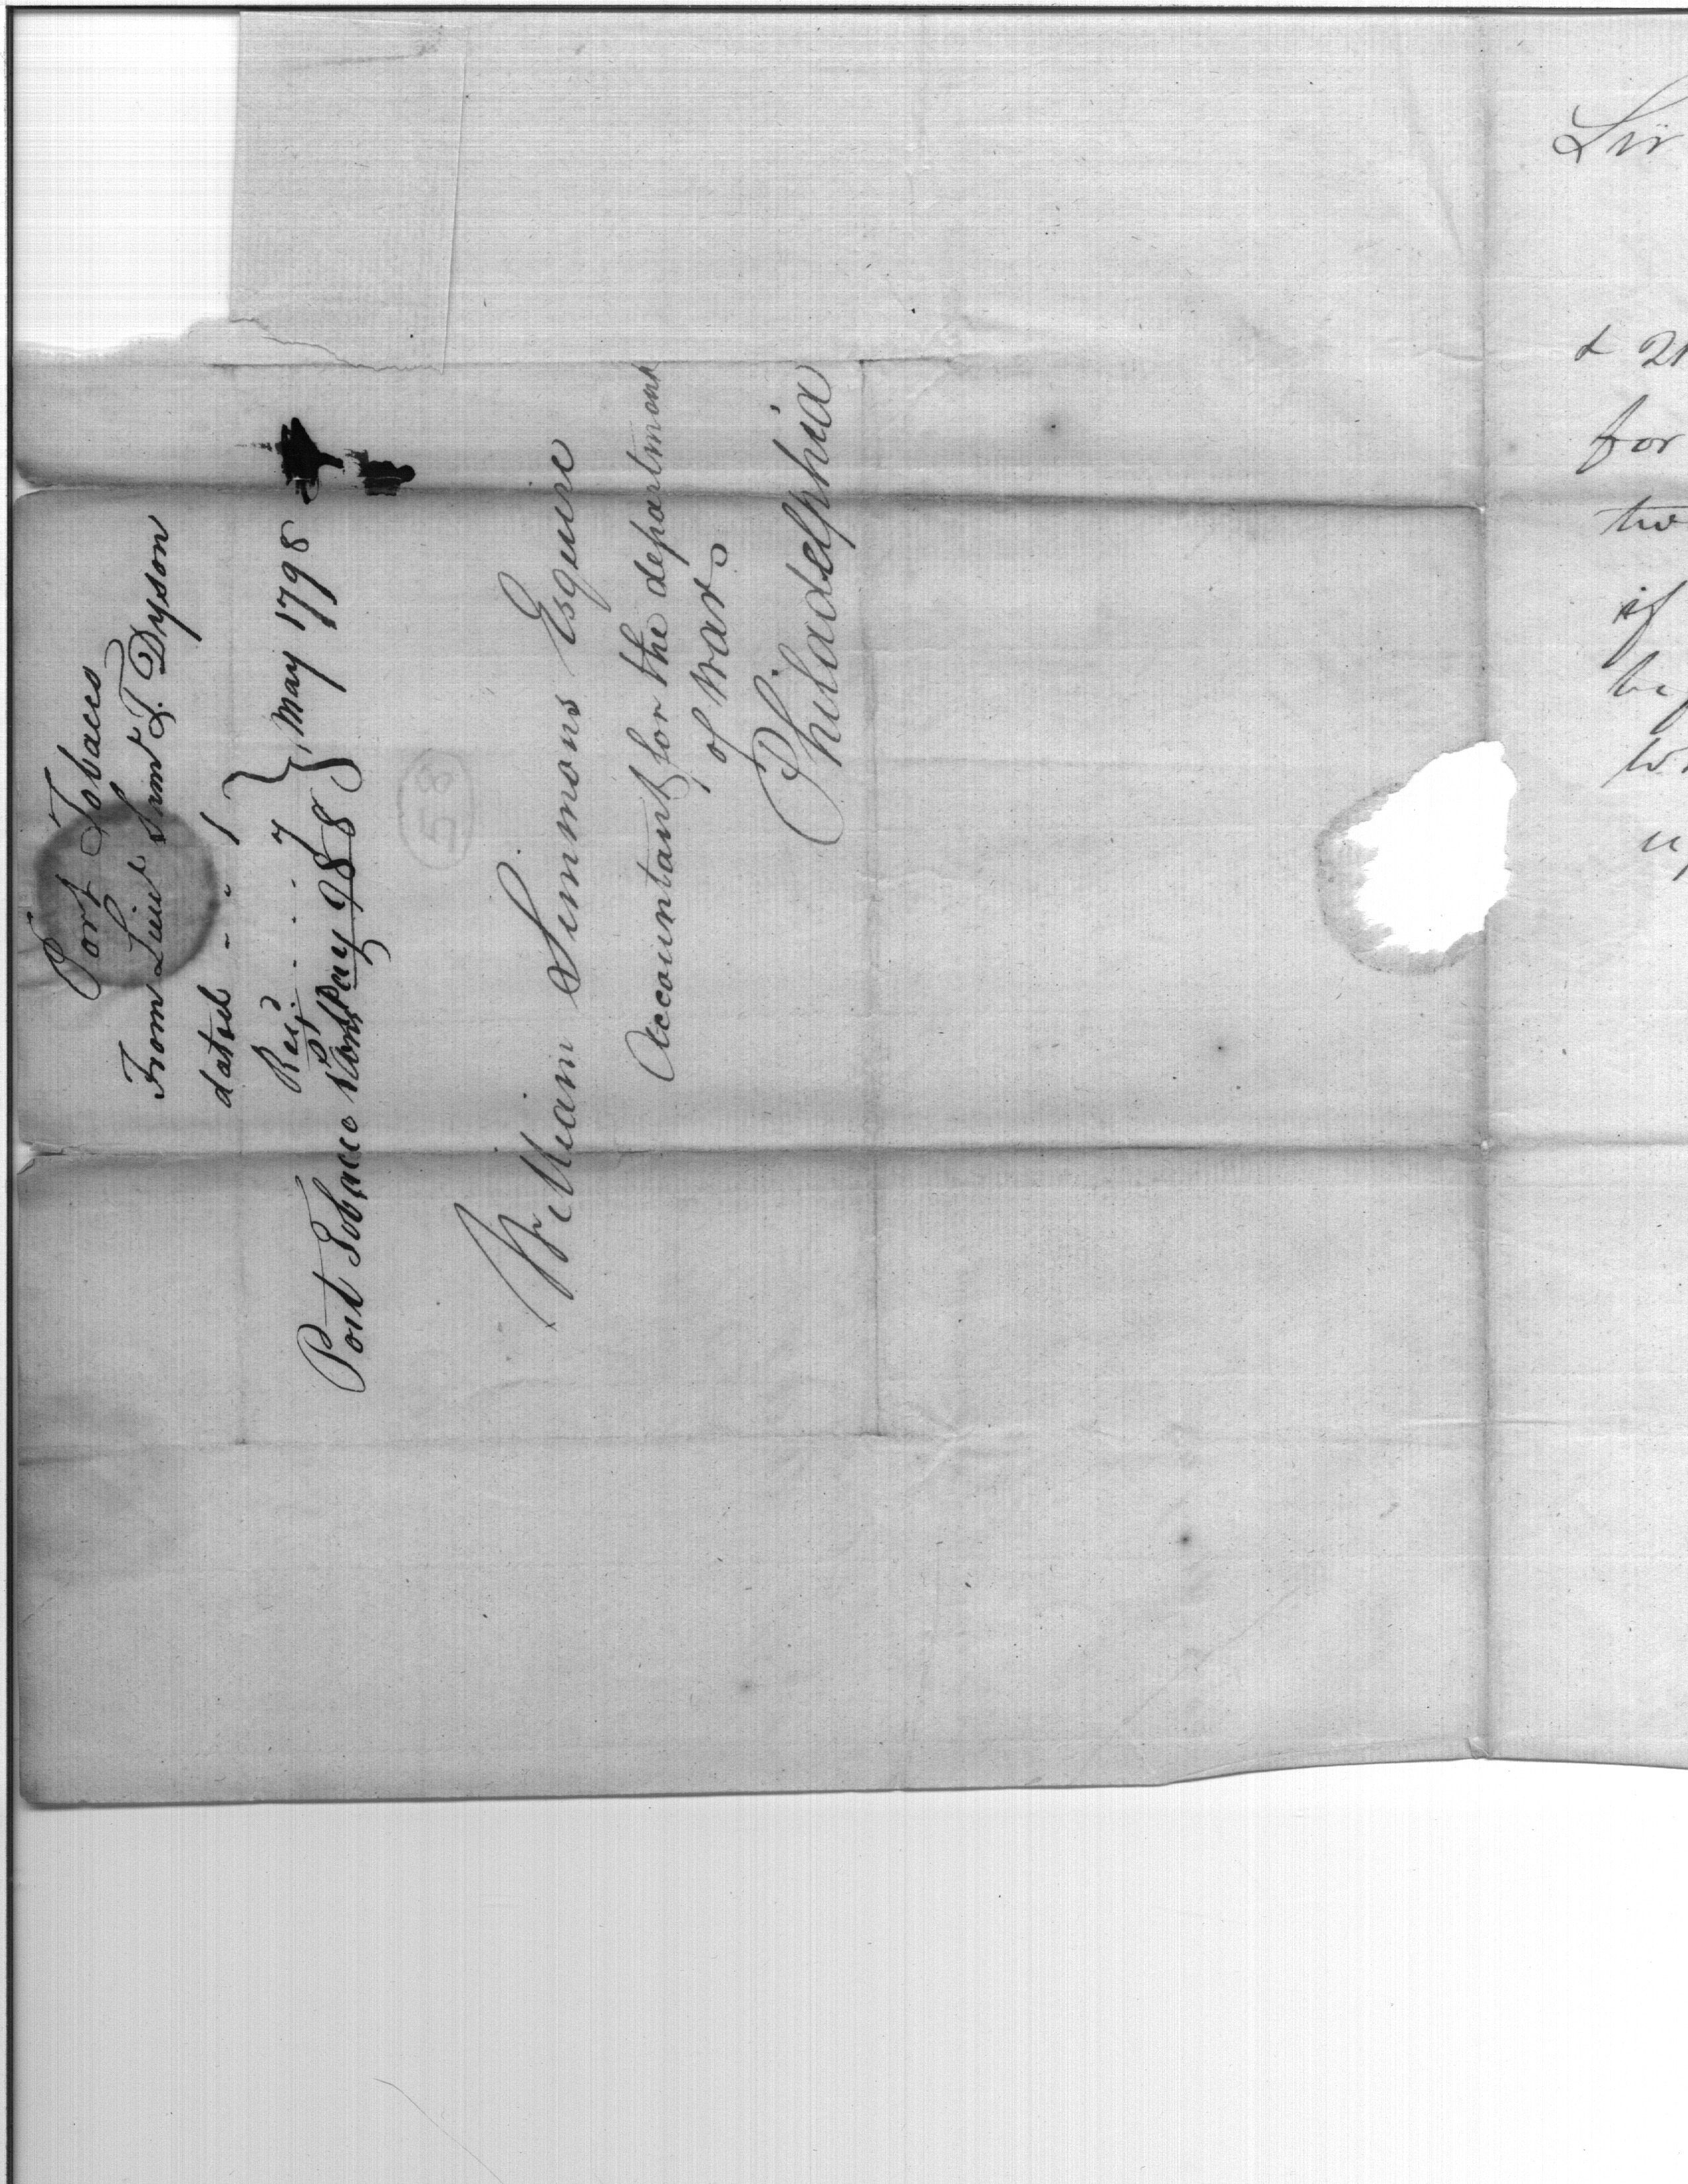 Port Tobacco
From Lieut Saml T. Dyson
dated - - 1
Recd. - - - 7 } May 1798
Port Tobacco May 98 8
58
William Simmons Esquire
Accountant for the department
of War
Philadelphia
Sir
& 21
for
two
if
up